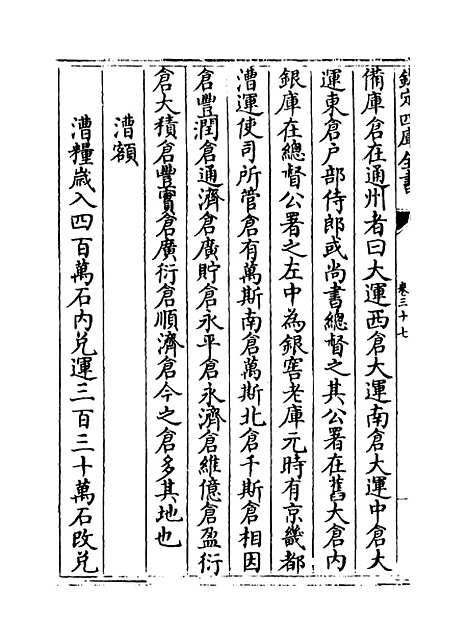 欽定四庫全書
卷三十七
備庫倉在通州者曰大運西倉大運南倉大運中倉大
運東倉户部侍郎或尚書總督之其公署在舊大倉内
銀庫在總督公署之左中為銀窖老庫元時有京畿都
漕運使司所管倉有萬斯南倉萬斯北倉千斯倉相因
倉豐潤倉通濟倉廣貯倉永平倉永濟倉維億倉盈衍
倉大積倉豐實倉廣衍倉順濟倉今之倉多其地也
漕額
漕糧歲入四百萬石内兑運三百三十萬石改兑